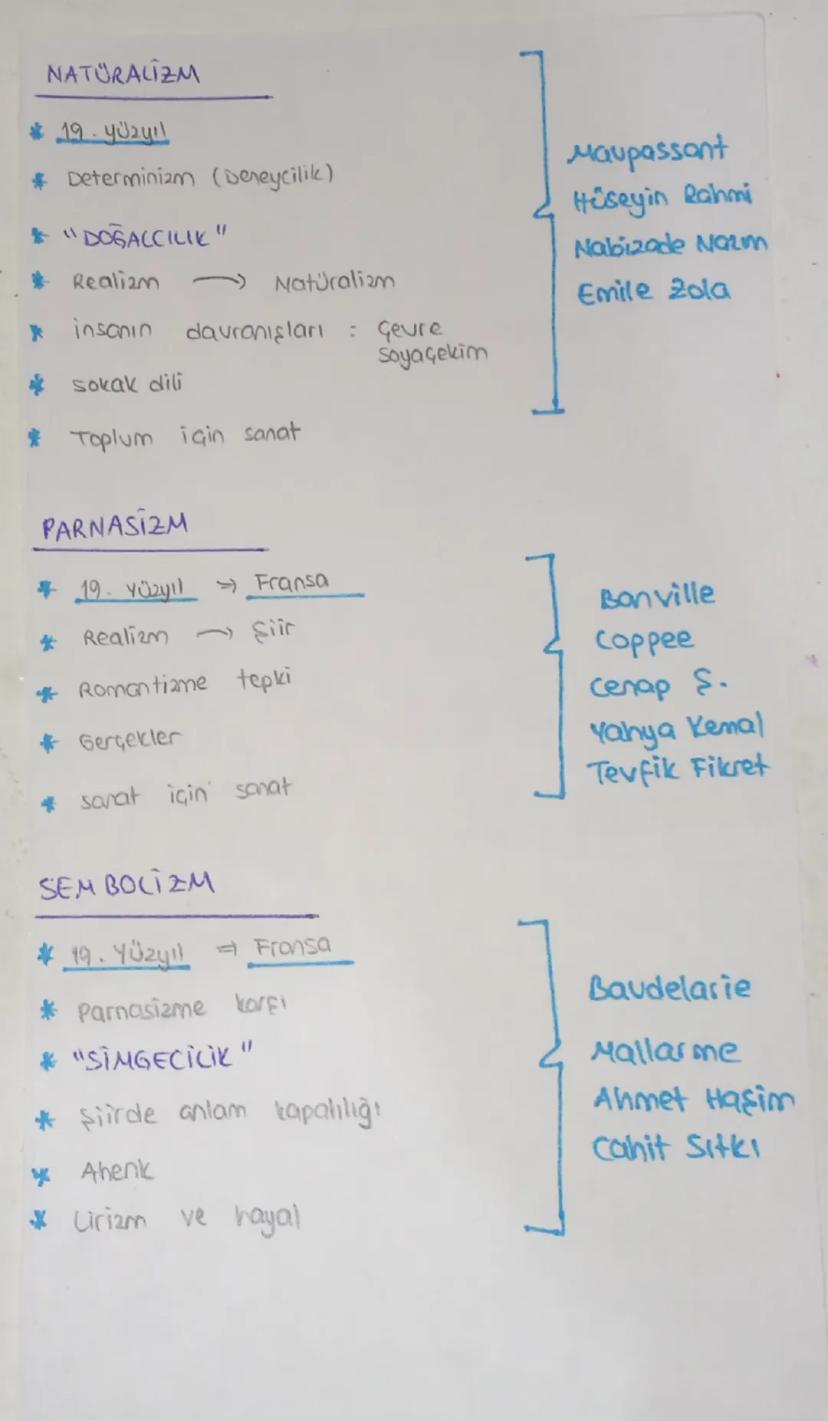 NATÜRALİZM
* 19. yüzyıl
* Determinizm (Deneycilik)
* "DOĞALCILIK"
* Realizm → Natüralizm
* insanın davranışları : Çevre
soyaçekim
* sokak dili
* Toplum için sanat
Maupassant
Hüseyin Rahmi
Nabizade Nazım
Emile Zola
PARNASİZM
* 19. yüzyıl ⇒ Fransa
* Realizm → Şiir
* Romantizme tepki
* Gerçekler
* sanat için sanat
Banville
Coppee
Cenap Ş.
Yahya Kemal
Tevfik Fikret
SEMBOLİZM
* 19. Yüzyıl ⇒ Fransa
* Parnasizme karşı
* "SİMGECİLİK"
* Şiirde anlam kapalılığı
* Ahenk
* Lirizm ve hayal
Baudelarie
Mallarme
Ahmet Haşim
Cahit Sıtkı